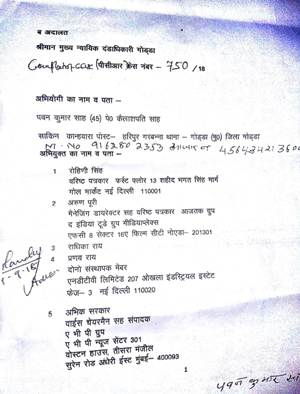 ब अदालत
श्रीमान मुख्य न्यायिक दंडाधिकारी गोड्डा
(पीसीआर) केस नंबर - 750/18
अभियोगी का नाम व पता —
पवन कुमार साह (45) पे० कैलाशपति साह
साकिन कान्हवारा पोस्ट- हरिपुर गरबन्ना थाना - गोड्डा (मु०) जिला गोड्डा
अभियुक्त का नाम व पता —
1 रोहिणी सिंह
वरिष्ठ पत्रकार फर्स्ट फ्लोर 13 शहीद भगत सिंह मार्ग
गोल मार्केट नई दिल्ली 110001
2 अरुण पूरी
मैनेजिंग डायरेक्टर सह वरिष्ठ पत्रकार आजतक ग्रुप
द इंडिया टूडे ग्रुप मीडियाप्लेक्स
एफसी 8 सेक्टर 16ए फिल्म सीटी नोएडा- 201301
3 राधिका राय
4 प्रणव राय
दोनो संस्थापक मेंबर
एनडीटीवी लिमिटेड 207 ओखला इंडस्ट्रियल इस्टेट
फेज- 3 नई दिल्ली 110020
5 अभिक सरकार
वाईस चेयरमैन सह संपादक
ए भी पी ग्रुप
ए भी पी न्यूज सेंटर 301
वोस्टन हाउस, तीसरा मंजील
सुरेन रोड अंधेरी ईस्ट मुंबई- 400093
पवन कुमार